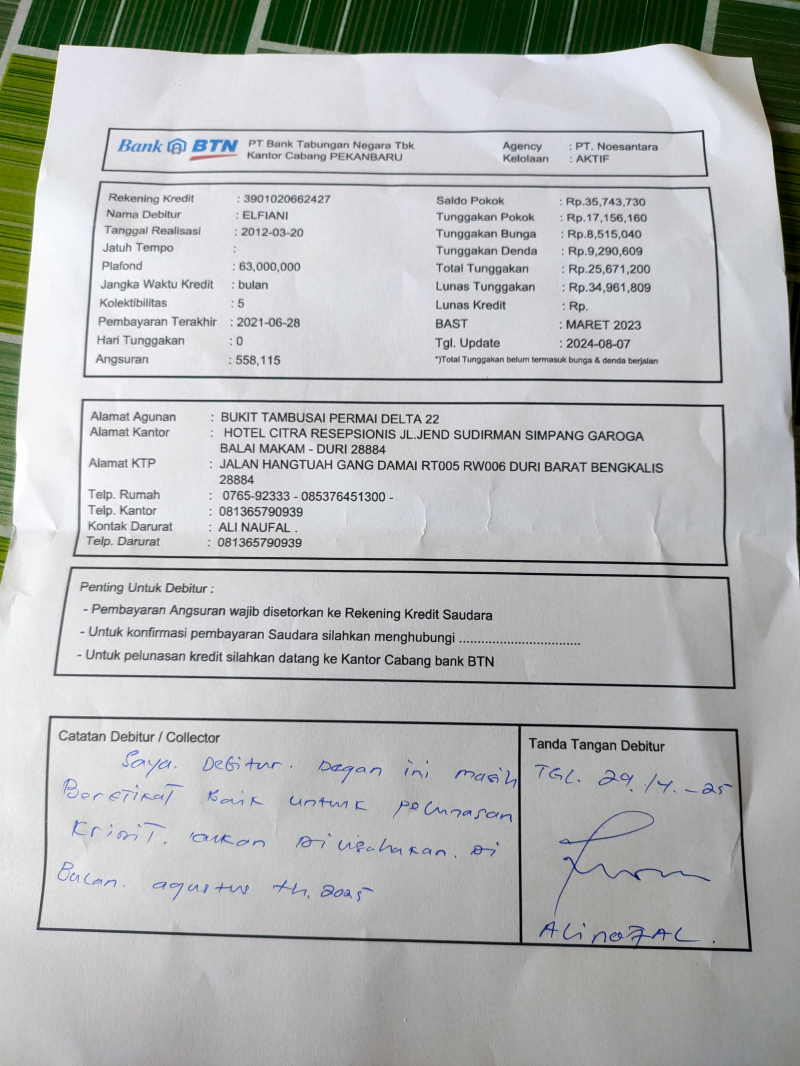 Bank BTN PT Bank Tabungan Negara Tbk
Kantor Cabang PEKANBARU
Agency : PT. Noesantara
Kelolaan : AKTIF
Rekening Kredit : 3901020662427
Nama Debitur : ELFIANI
Tanggal Realisasi : 2012-03-20
Jatuh Tempo :
Plafond : 63,000,000
Jangka Waktu Kredit : bulan
Kolektibilitas : 5
Pembayaran Terakhir : 2021-06-28
Hari Tunggakan : 0
Angsuran : 558,115
Saldo Pokok : Rp.35,743,730
Tunggakan Pokok : Rp.17,156,160
Tunggakan Bunga : Rp.8,515,040
Tunggakan Denda : Rp.9,290,609
Total Tunggakan : Rp.25,671,200
Lunas Tunggakan : Rp.34,961,809
Lunas Kredit : Rp.
BAST : MARET 2023
Tgl. Update : 2024-08-07
*)Total Tunggakan belum termasuk bunga & denda berjalan
Alamat Agunan : BUKIT TAMBUSAI PERMAI DELTA 22
Alamat Kantor : HOTEL CITRA RESEPSIONIS JL.JEND SUDIRMAN SIMPANG GAROGA
BALAI MAKAM - DURI 28884
Alamat KTP : JALAN HANGTUAH GANG DAMAI RT005 RW006 DURI BARAT BENGKALIS
28884
Telp. Rumah : 0765-92333 - 085376451300 -
Telp. Kantor : 081365790939
Kontak Darurat : ALI NAUFAL .
Telp. Darurat : 081365790939
Penting Untuk Debitur :
- Pembayaran Angsuran wajib disetorkan ke Rekening Kredit Saudara
- Untuk konfirmasi pembayaran Saudara silahkan menghubungi ................................
- Untuk pelunasan kredit silahkan datang ke Kantor Cabang bank BTN
Catatan Debitur / Collector
Saya. Debitur. Degan ini masih
Beretikat Baik untuk pelunasan
Kridit. akan Di usahakan. Di
Bulan. agustus th. 2025
Tanda Tangan Debitur
TGL. 29./4.-25
ALi noFAL.